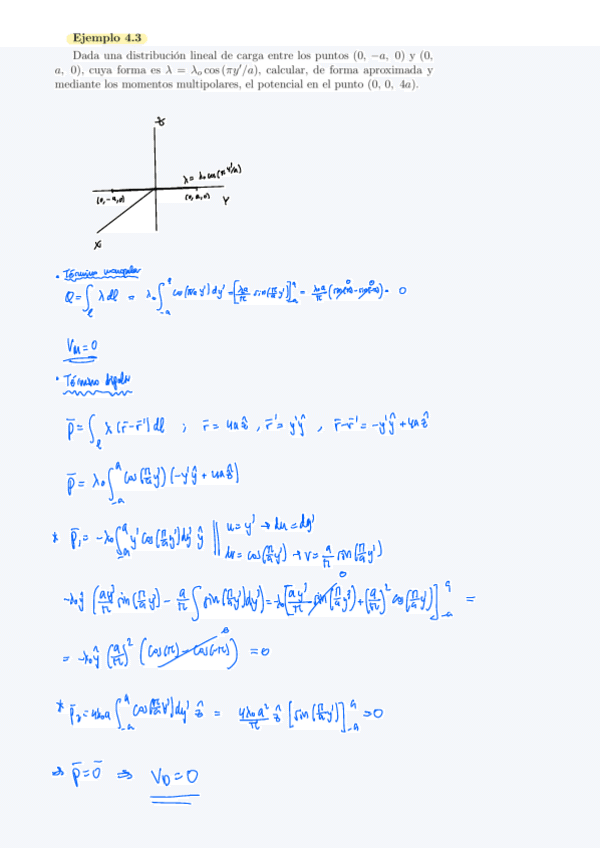 Ejemplo 4.3
Dada una distribución lineal de carga entre los puntos (0, −a, 0) y (0,
a, 0), cuya forma es λ = λₒ cos (πy′/a), calcular, de forma aproximada y
mediante los momentos multipolares, el potencial en el punto (0, 0, 4a).
z
λ = λ₀ cos(π y'/a)
(0, -a, 0) (0, a, 0) Y
X
• Término monopolar
Q = ∫_ℓ λ dl = λ₀ ∫_{-a}^{a} cos(π/a y') dy' = [λ₀a/π sin(π/a y')]_{-a}^{a} = λ₀a/π (sin(π) - sin(-π)) = 0
V_M = 0
• Término dipolar
p̄ = ∫_ℓ λ (r̄ - r̄') dl ; r̄ = 4a ẑ , r̄' = y' ŷ , r̄ - r̄' = -y' ŷ + 4a ẑ
p̄ = λ₀ ∫_{-a}^{a} cos(π/a y') (-y' ŷ + 4a ẑ)
* p̄₁ = -λ₀ ∫_{-a}^{a} y' cos(π/a y') dy' ŷ || u = y' → du = dy'
dv = cos(π/a y') → v = a/π sin(π/a y')
-λ₀ ŷ (ay'/π sin(π/a y') - a/π ∫ sin(π/a y') dy') = -λ₀ [ay'/π sin(π/a y') + (a/π)² cos(π/a y')]_{-a}^{a} =
= -λ₀ ŷ (a/π)² (cos(π) - cos(-π)) = 0
* p̄₂ = 4λ₀a ∫_{-a}^{a} cos(π/a y') dy' ẑ = 4λ₀a²/π ẑ [sin(π/a y')]_{-a}^{a} = 0
⇒ p̄ = 0̄ ⇒ V_D = 0